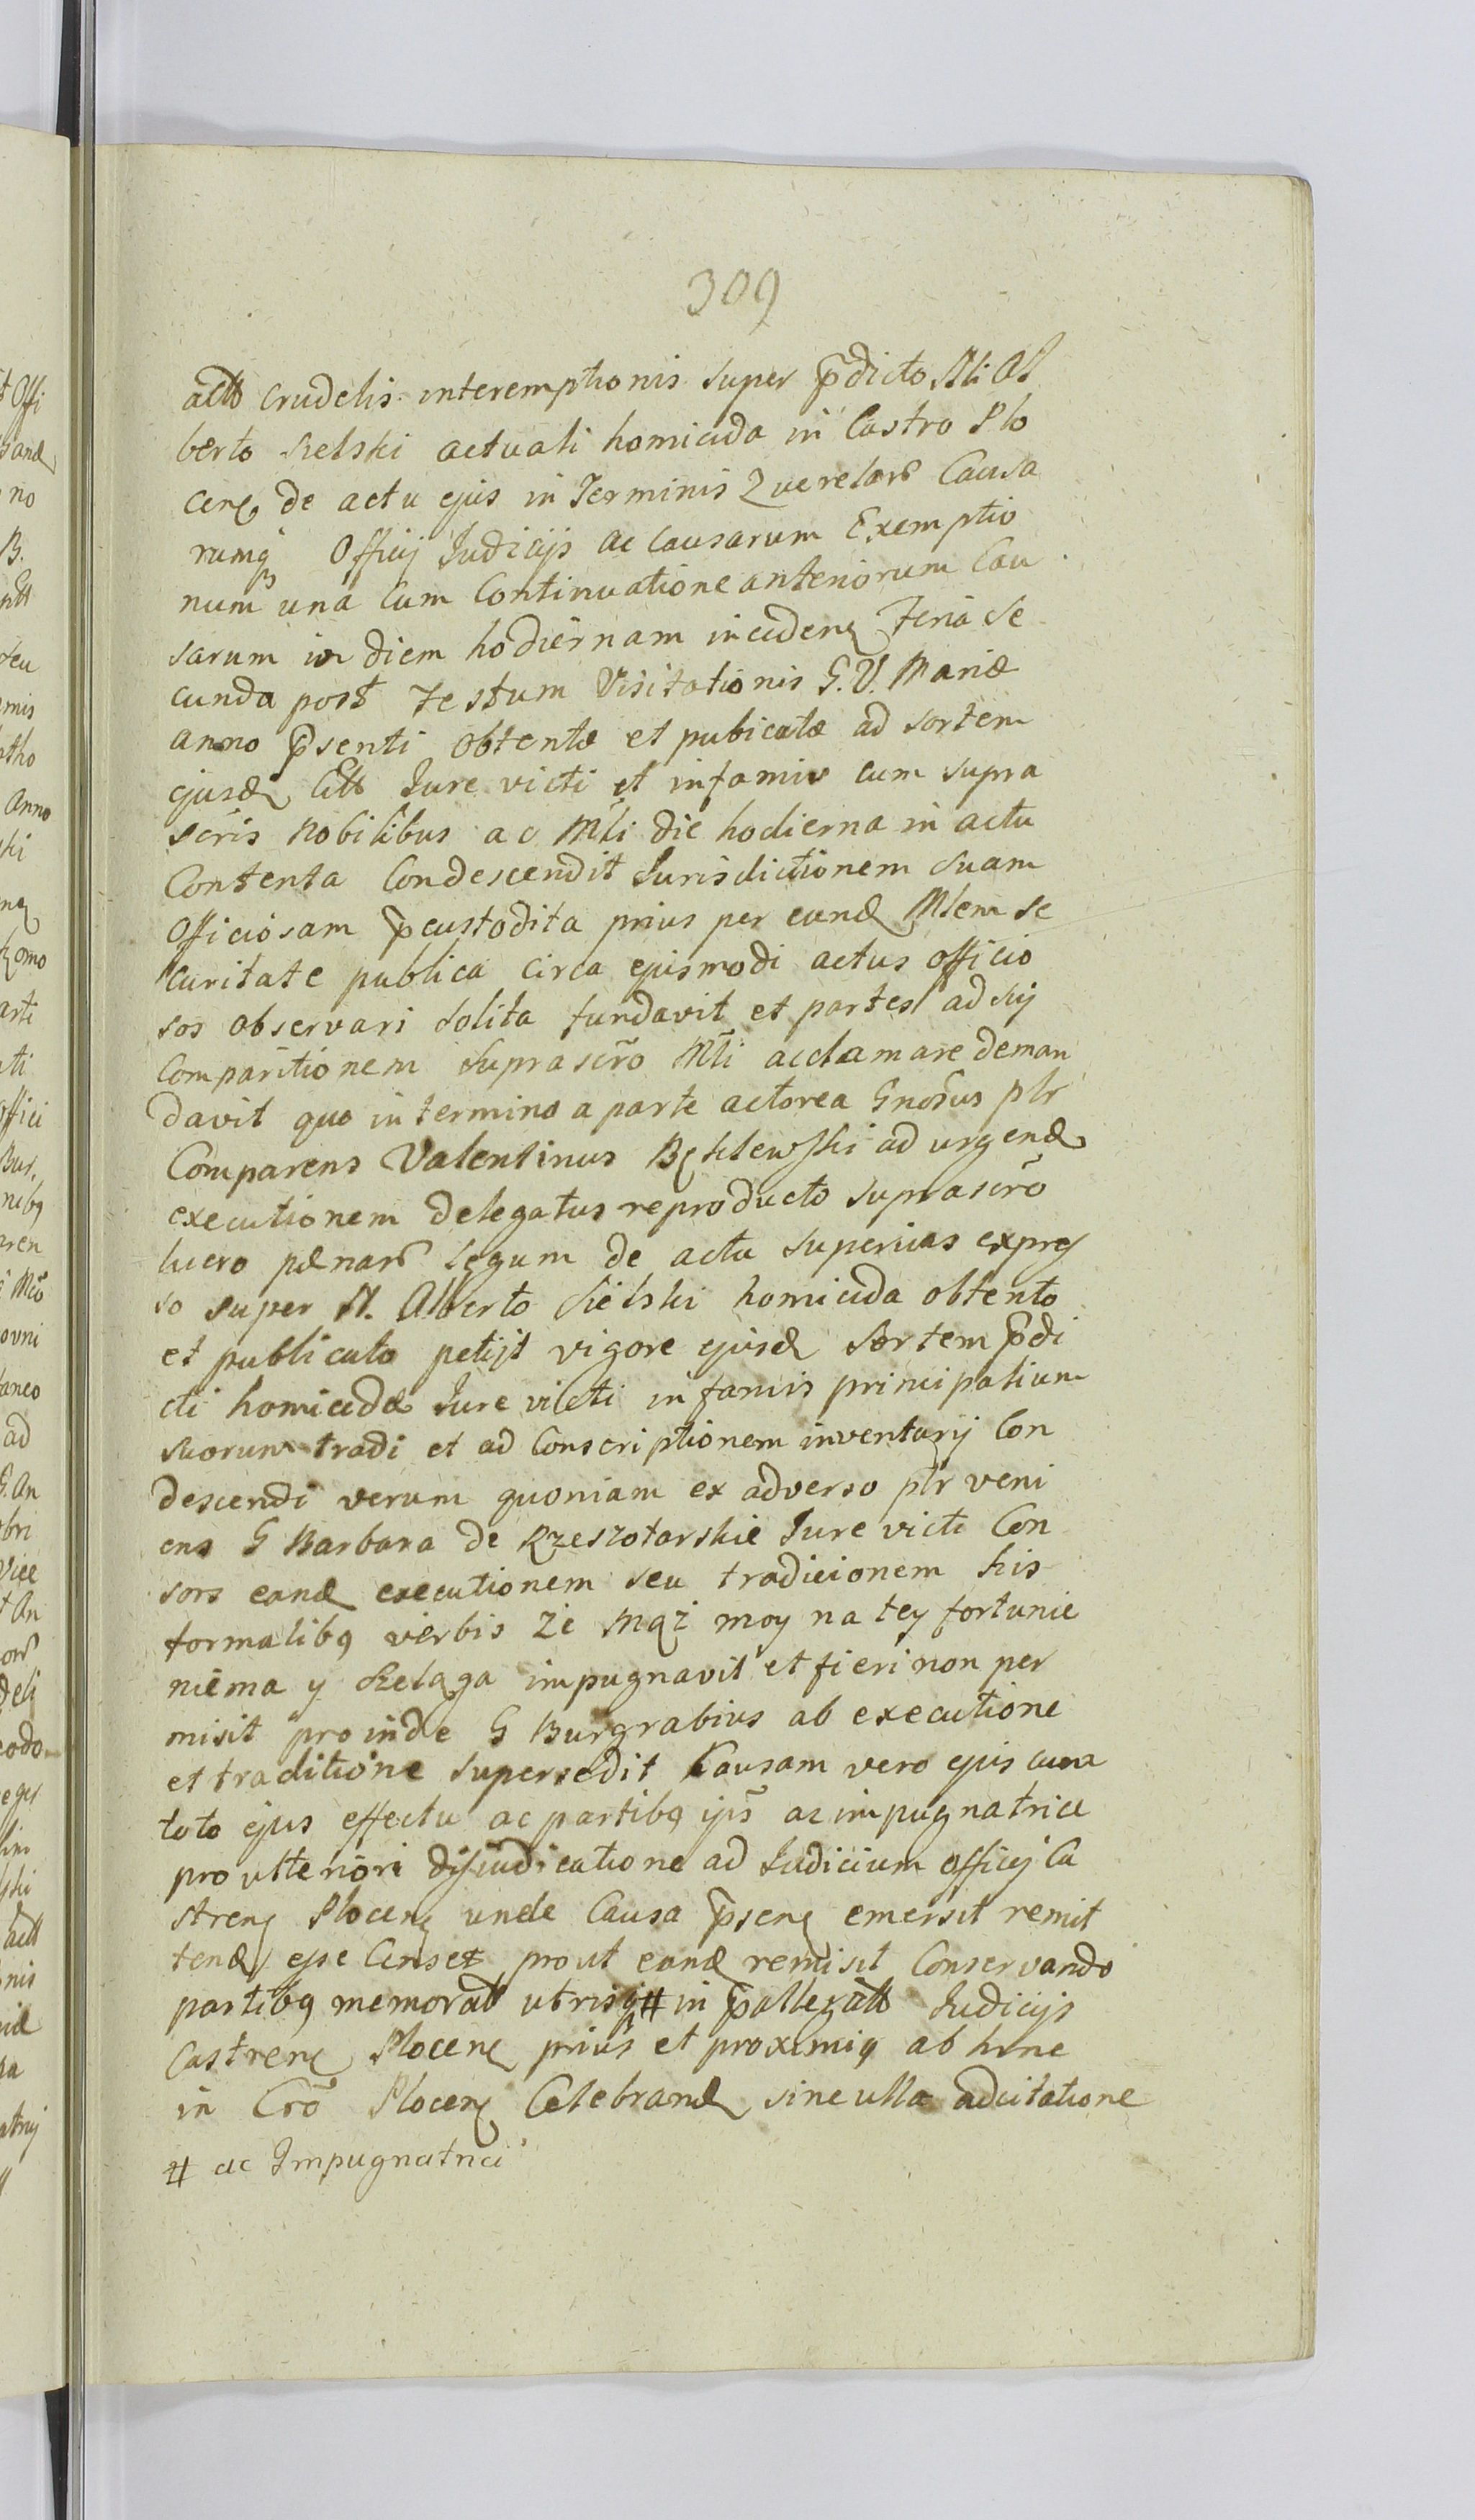 309
actt crudelis interemptionis super p̃dicto Nli Al
berto Sielski actuali homicida in Castro Plo
cenę de actu ejus in Terminis Querelarũ Causa
rumq; Officij Judicijs ac Causarum Exemptio
num una cum Continuatione anteriorum Cau
sarum in diem hodiernam incidenę Feria Se
cunda post Festum Visitationis G. V. Mariæ
anno p̃senti obtentæ et pubicatæ ad sortem
ejusd Citt Jure victi et infamis cum supra
scr̃is Nobilibus ac Mĩli die hodierna in actu
Contenta Condescendit Jurisdictionem suam
Officiosam p̃custodita prius per eund Mlem se
curitate publica circa ejusmodi actus officio
sos observari solita fundavit et partes ad sui
Comparitionem suprascr̃o Mli acclamare deman
davit quo in termino a parte actorea Gnosus plr
Comparens Valentinus Bęklewski ad urgend
executionem delegatus reproducto suprascr̃o
lucro pænarũ legum de actu superius expres
so super N. Alberto Sielski homicida obtento
et publicato petijt vigore ejusd Sortem p̃di
cti homicidæ Jure victi infamis principalium
suorum tradi et ad Conscriptionem inventarij Con
descendi verum quoniam ex adverso plr veni
ens G Barbara de Rzeszotarskie Jure victi Con
sors eand executionem seu tradicionem his
formalibq verbis że mąż moy na tey fortunie
niema y szeląga impugnavit et fieri non per
misit proinde G Burgrabius ab executione
et traditione supersedit Causam vero ejus cum
toto ejus effectu ac partibq ips̃ ac impugnatrice
pro ulteriori disjudicatione ad Judicium Officij Ca
strenę Plocenę unde Causa p̃senę emersit remit
tend esse Censet prout eand remisit Conservando
partibq memoratt utrisq; # in p̃allegatt Judicijs
Castrenę Plocenę prius et proximiq ab hinc
in Crõ Plocenę Celebrand sine ulla adcitatione
# ac Impugnatrici